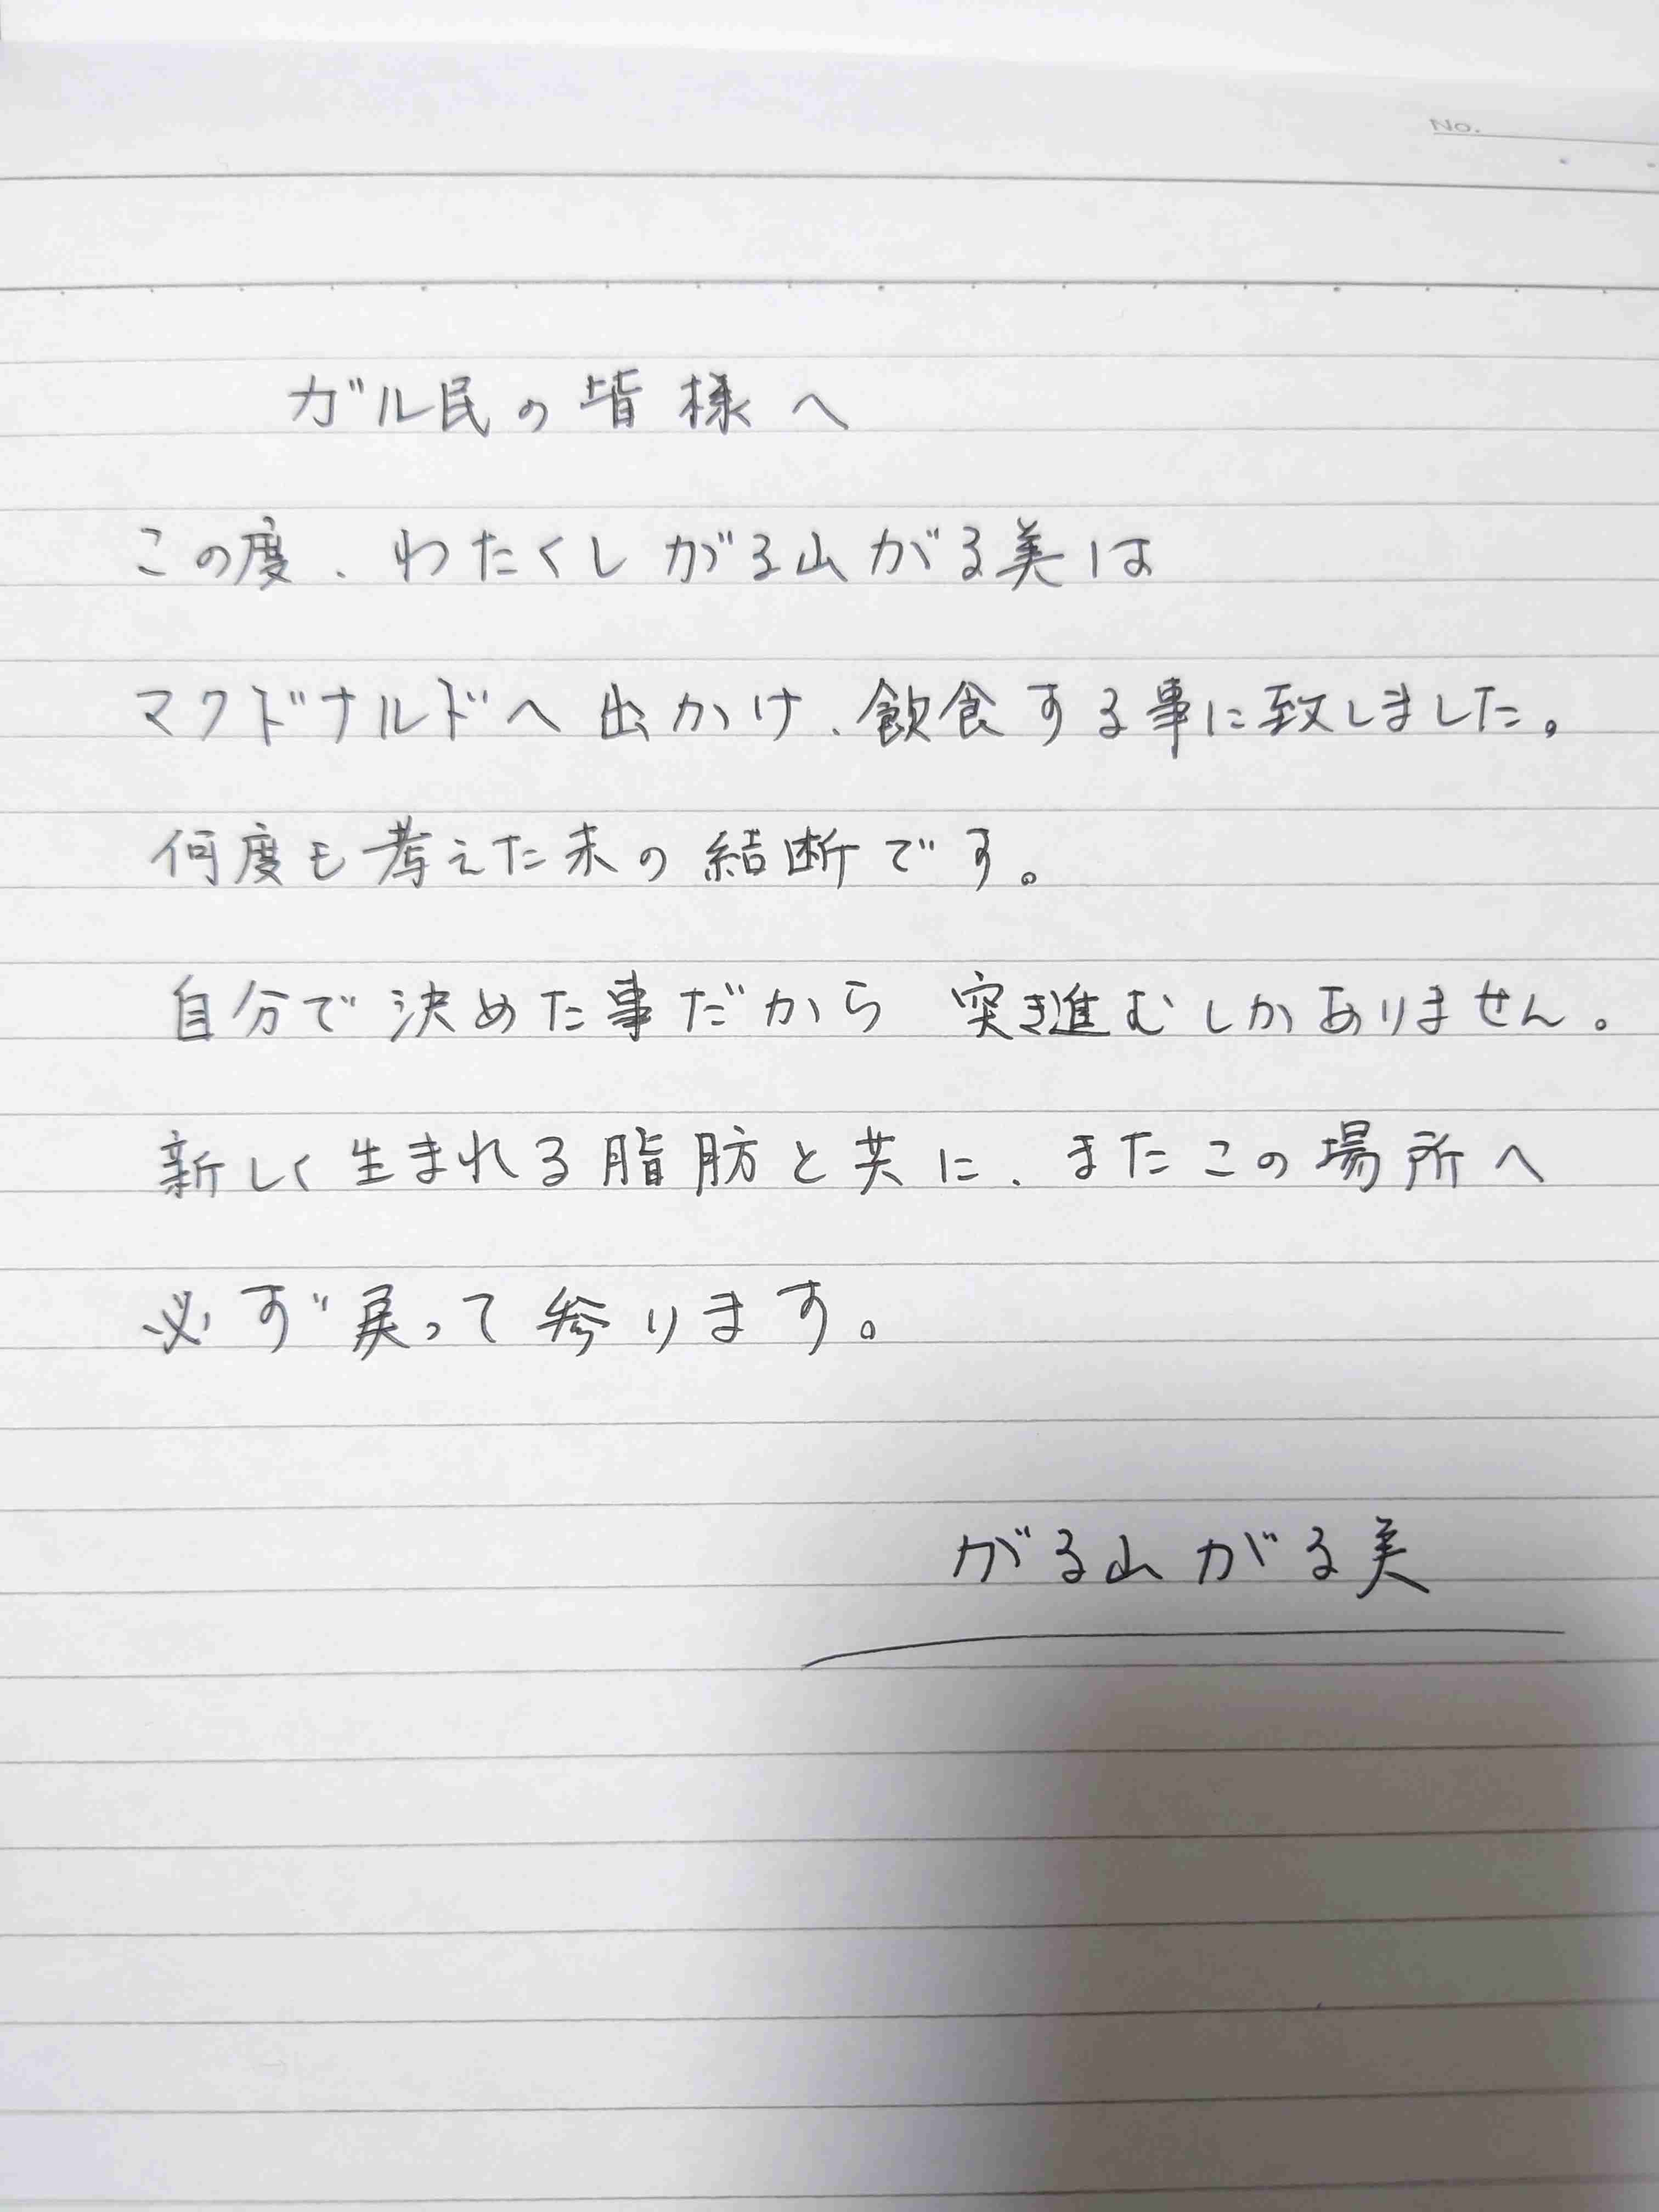 No.
ガル民の皆様へ
この度、わたくしがる山がる美は
マクドナルドへ出かけ、飲食する事に致しました。
何度も考えた末の結断です。
自分で決めた事だから 突き進むしかありません。
新しく生まれる脂肪と共に、またこの場所へ
必ず戻って参ります。
がる山がる美